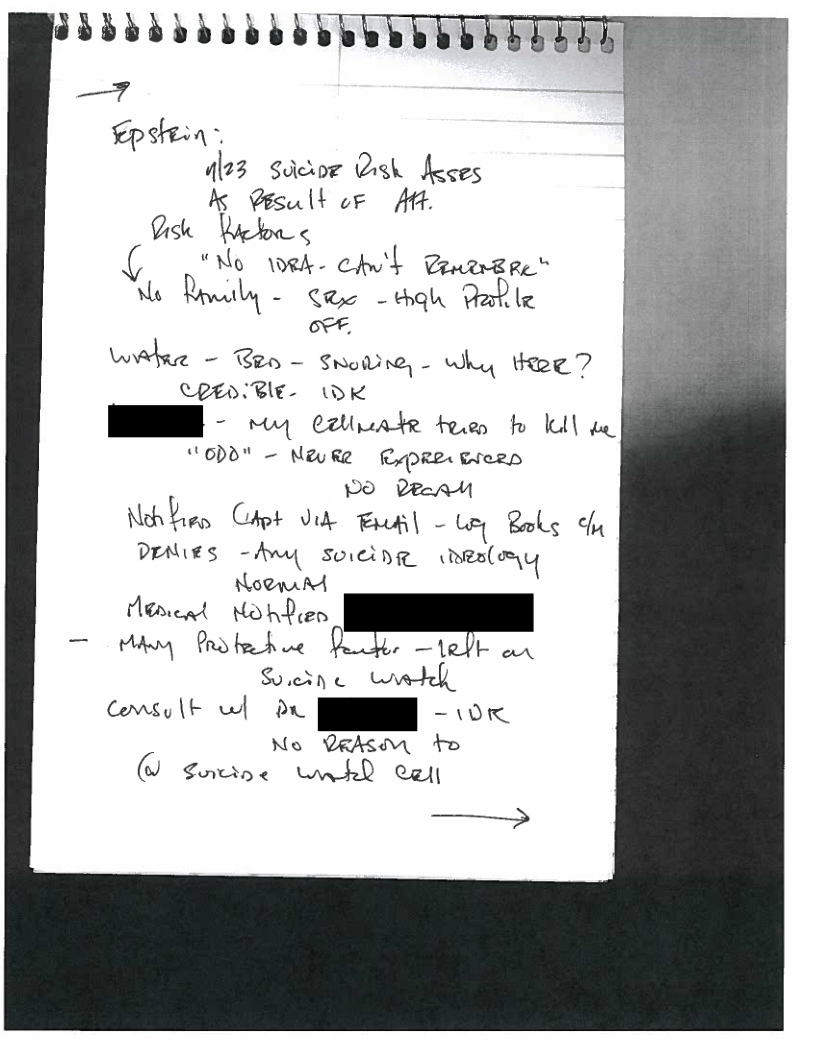 Epstein:
7/23 Suicide Risk Asses
As Result of Att.
Risk Factors
"No IDEA - CAN'T REMEMBER"
No Family - SEX - High Profile
OFF.
WATER - BED - SNORING - Why HERE?
CREDIBLE - IDK
- My Cellmate tried to kill me
"ODD" - NEVER EXPERIENCED
NO RECALL
Notified Capt VIA Email - Log Books c/m
DENIES - Any SUICIDE IDEOLOGY
NORMAL
MEDICAL Notified
- MANY Protective factor - left on
Suicide Watch
Consult w/ DR - IDK
No REASON to
@ Suicide Watch Cell